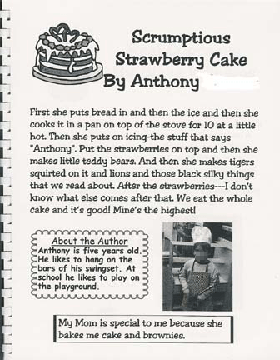 Scrumptious
Strawberry Cake
By Anthony
First she puts bread in and then the ice and then she
cooks it in a pan on top of the stove for 10 at a little
hot. Then she puts on icing-the stuff that says
"Anthony". Put the strawberries on top and then she
makes little teddy bears. And then she makes tigers
squirted on it and lions and those black silky things
that we read about. After the strawberries---I don't
know what else comes after that. We eat the whole
cake and it's good! Mine's the highest!
About the Author
Anthony is five years old.
He likes to hang on the
bars of his swingset. At
school he likes to play on
the playground.
My Mom is special to me because she
bakes me cake and brownies.